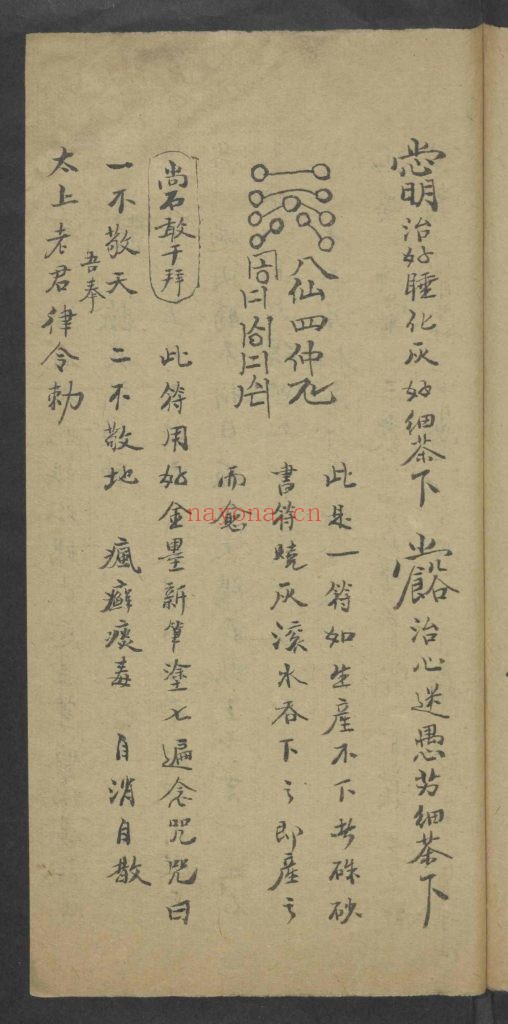 治好睡化灰好細茶下 治心迷愚方細茶下
八仙四仲
此是一符如生產不下者硃砂
書符燒灰滚水吞下之即產之
而愈
尚不敢干拜
此符用好金墨新筆塗七遍念咒咒曰
一不敬天 二不敬地 瘋癬痰毒 自消自散
吾奉
太上老君律令勅
nayona.cn